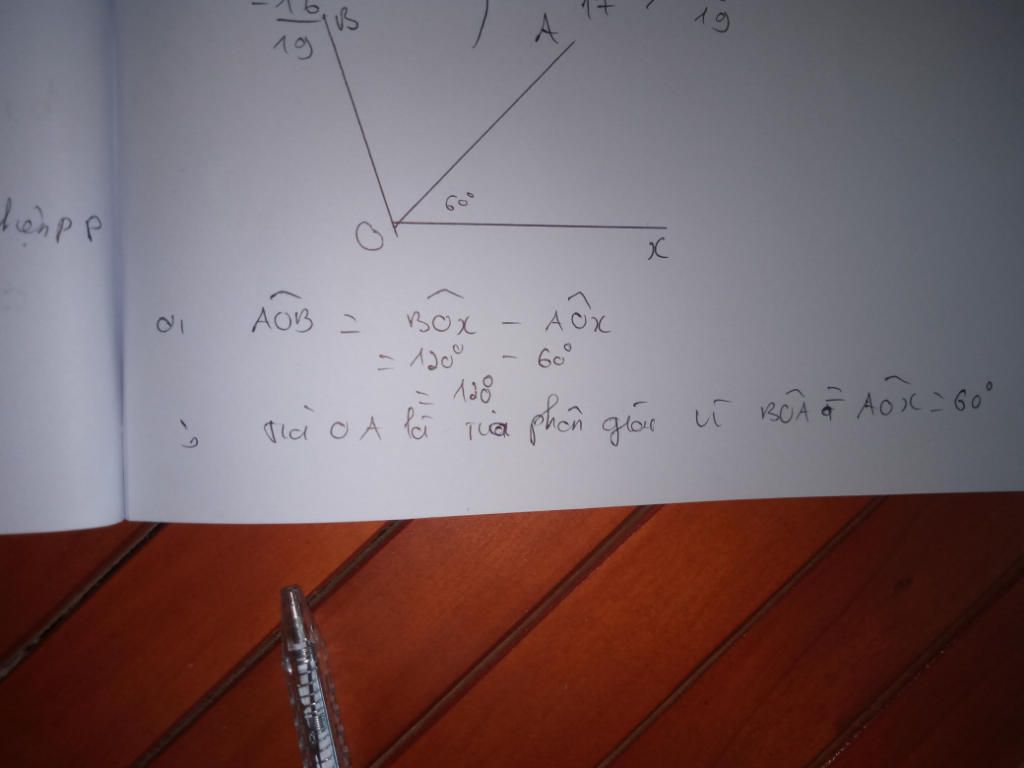 -16 B
19
A 17 , 19
60°
O x
hiện p p
a, AÔB = BÔx - AÔx
= 120° - 60°
= 120
b, tia OA là tia phân giác vì BÔA = AÔx = 60°